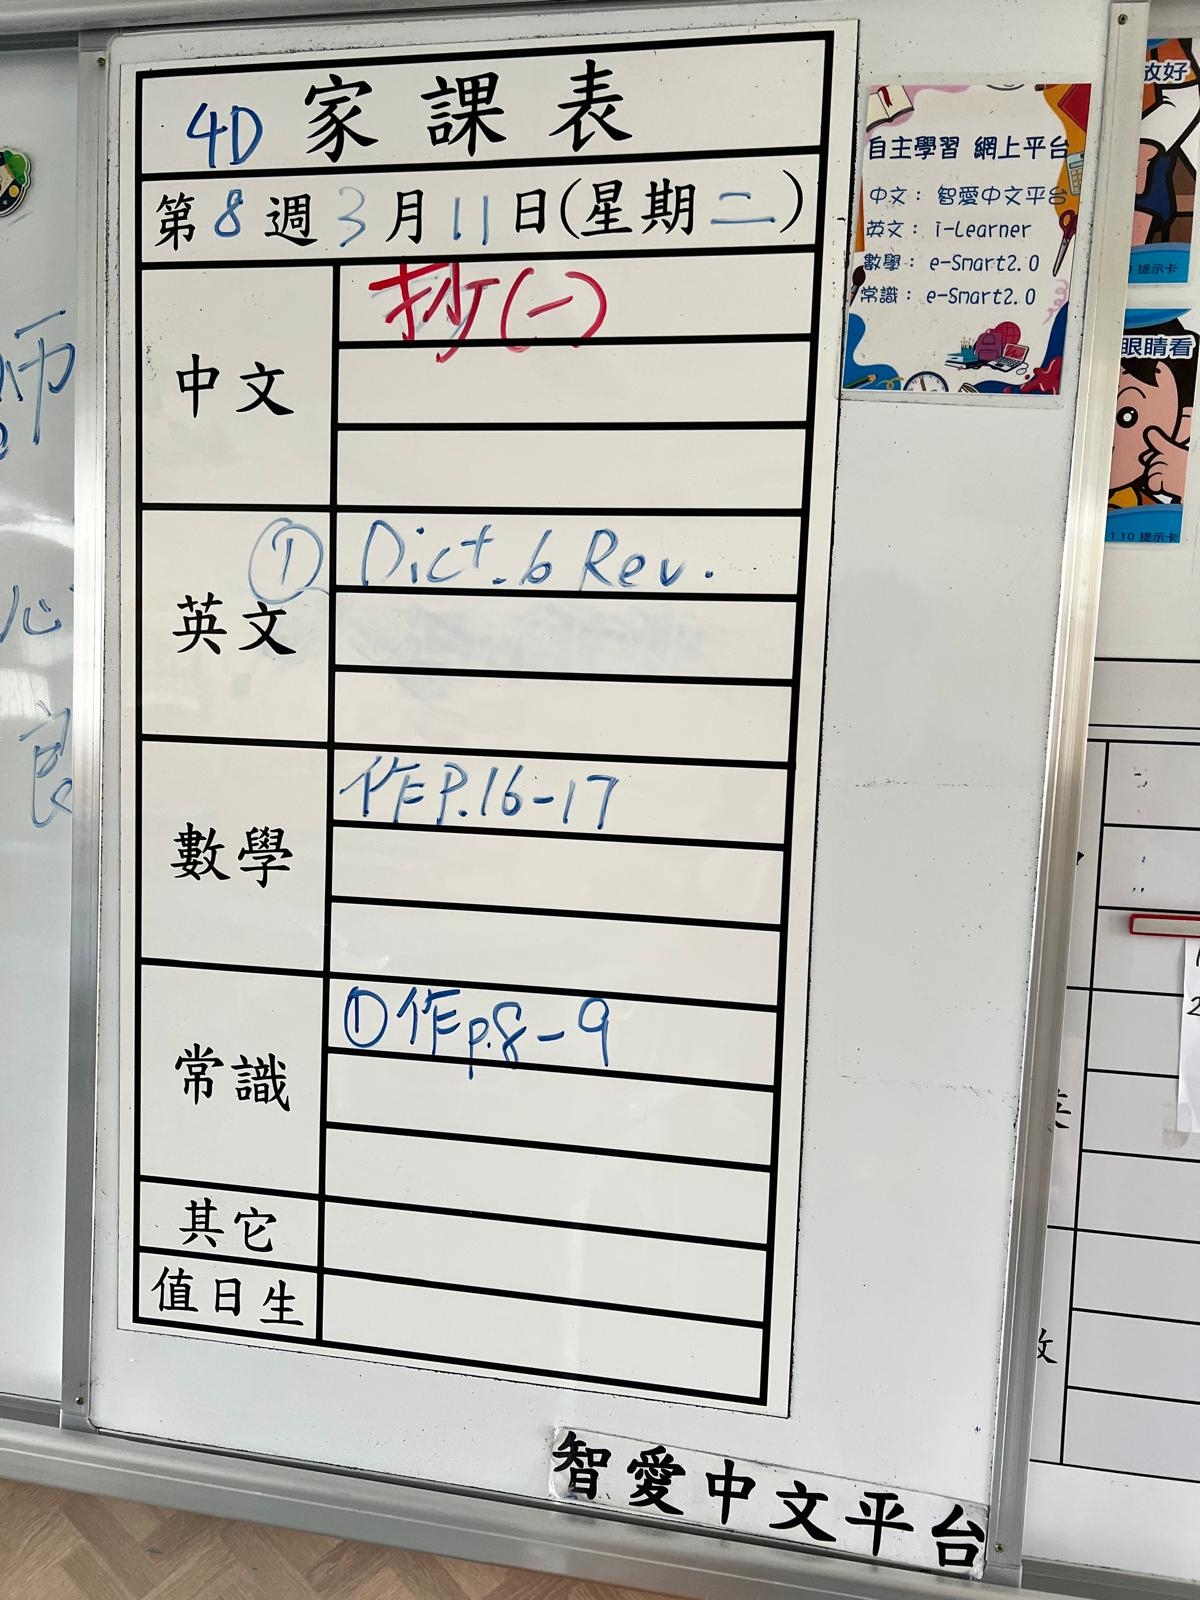 4D 家課表
第 8 週 3 月 11 日(星期二)
中文
抄(一)
英文
① Dict. 6 Rev.
數學
作P.16-17
常識
①作p.8-9
其它
值日生
自主學習 網上平台
中文： 智愛中文平台
英文： i-Learner
數學： e-Smart2.0
常識： e-Smart2.0
智愛中文平台
放好
提示卡
眼睛看
1.10 提示卡
師
心
良